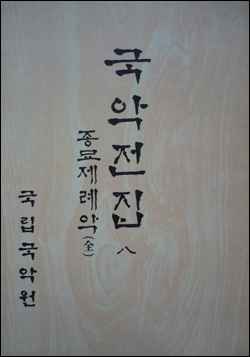 국악전집 八
종묘제례악(全)
국립국악원